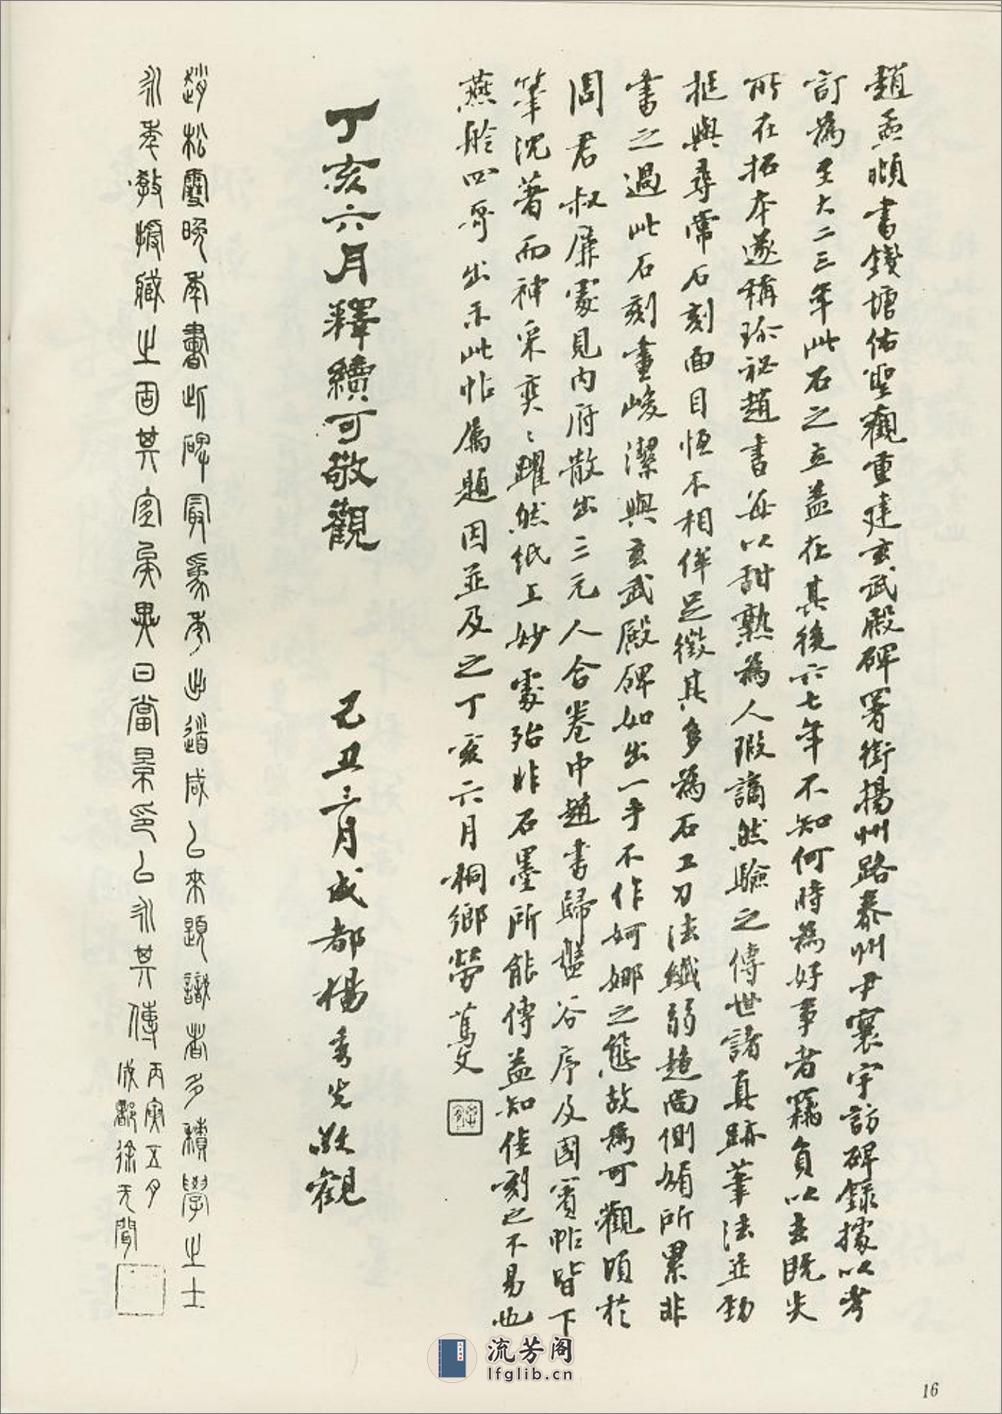 趙孟頫書錢塘佑聖觀重建玄武殿碑署銜揚州路泰州尹寰宇訪碑錄據以考
訂為至大二三年此石之立蓋在其後六七年不知何時為好事者竊負以去既失
所在拓本遂稱珍祕趙書每以甜熟為人瑕謫然驗之傳世諸真跡筆法並勁
挺與尋常石刻面目恆不相侔足徵其多為石工刀法纖弱趙面側媚所累非
書之過此石刻畫峻潔與玄武殿碑如出一手不作婀娜之態故為可觀頃於
周君叔厈處見內府散出之元人合卷中趙書歸盤谷序及國賓帖皆下
筆沈著而神采奕〻躍然紙上妙處殆非石墨所能傳益知佳刻之不易也
燕舲四哥出示此帖屬題因並及之丁亥六月桐鄉勞篤文
丁亥六月釋續可敬觀
己丑三月成都楊秀先敬觀
趙松雪晚年書此碑最為老 道咸以來題識者多積學之士
永年教授藏之固其宜矣異日當景印以永其傳
丙寅五月
成都徐无聞
流芳阁
lfglib.cn
16